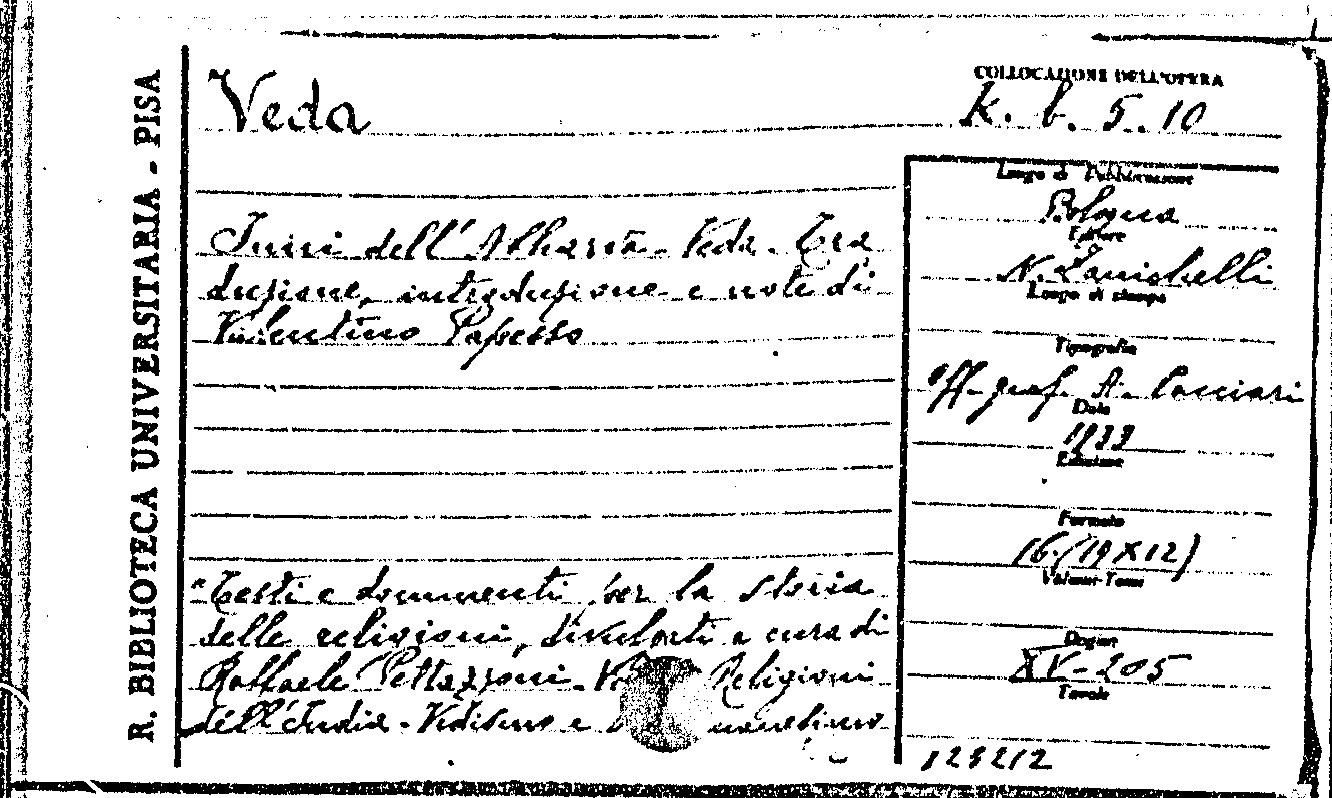 R. BIBLIOTECA UNIVERSITARIA - PISA
Veda
COLLOCAZIONE DELL'OPERA
K. b. 5. 10
Inni dell'Atharva-Veda. Tra
duzione, introduzione e note di
Valentino Papesso
"Testi e documenti per la storia
delle religioni, divulgati a cura di
Raffaele Pettazzoni. Religioni
dell'India - Vedismo e
Luogo di Pubblicazione
Bologna
Editore
N. Zanichelli
Luogo di stampa
Tipografia
Off. graf. A. Cacciari
Data
1933
Edizione
Formato
16.(19X12)
Volume-Tomo
Pagine
XV-205
Tavole
123212